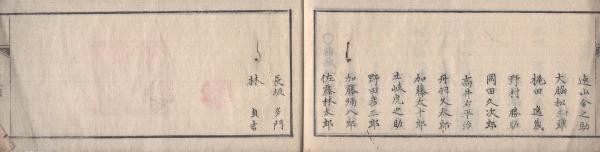 遠山金之助
大脇松三郎
梶田逸蔵
野村勝
岡田久次郎
高井右平治
丹羽久太郎
加藤太十郎
土岐虎之助
野田彦三郎
加藤陽八郎
佐藤林太郎
長坂多門
林貞吉